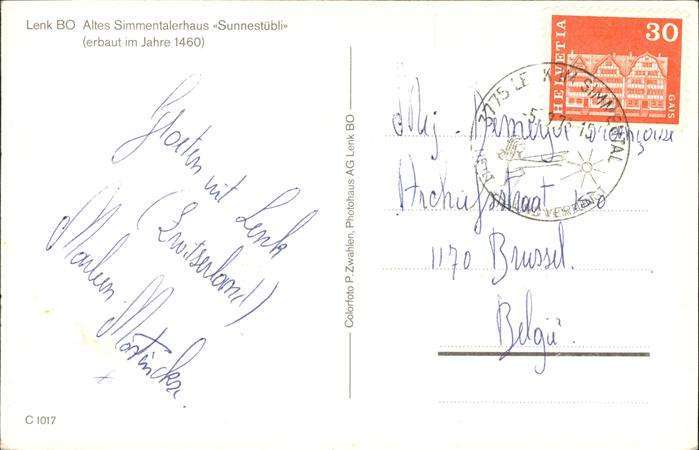 Lenk BO Altes Simmentalerhaus «Sunnestübli»
(erbaut im Jahre 1460)
Groeten uit Lenk
(Zwitserland)
Martinske.
x
C 1017
Colorfoto P. Zwahlen, Photohaus AG Lenk BO
HELVETIA
30
GAIS
3775 LENK IM SIMMENTAL
Mej. Françoise
Archiefsstraat
1170 Brussel.
België.